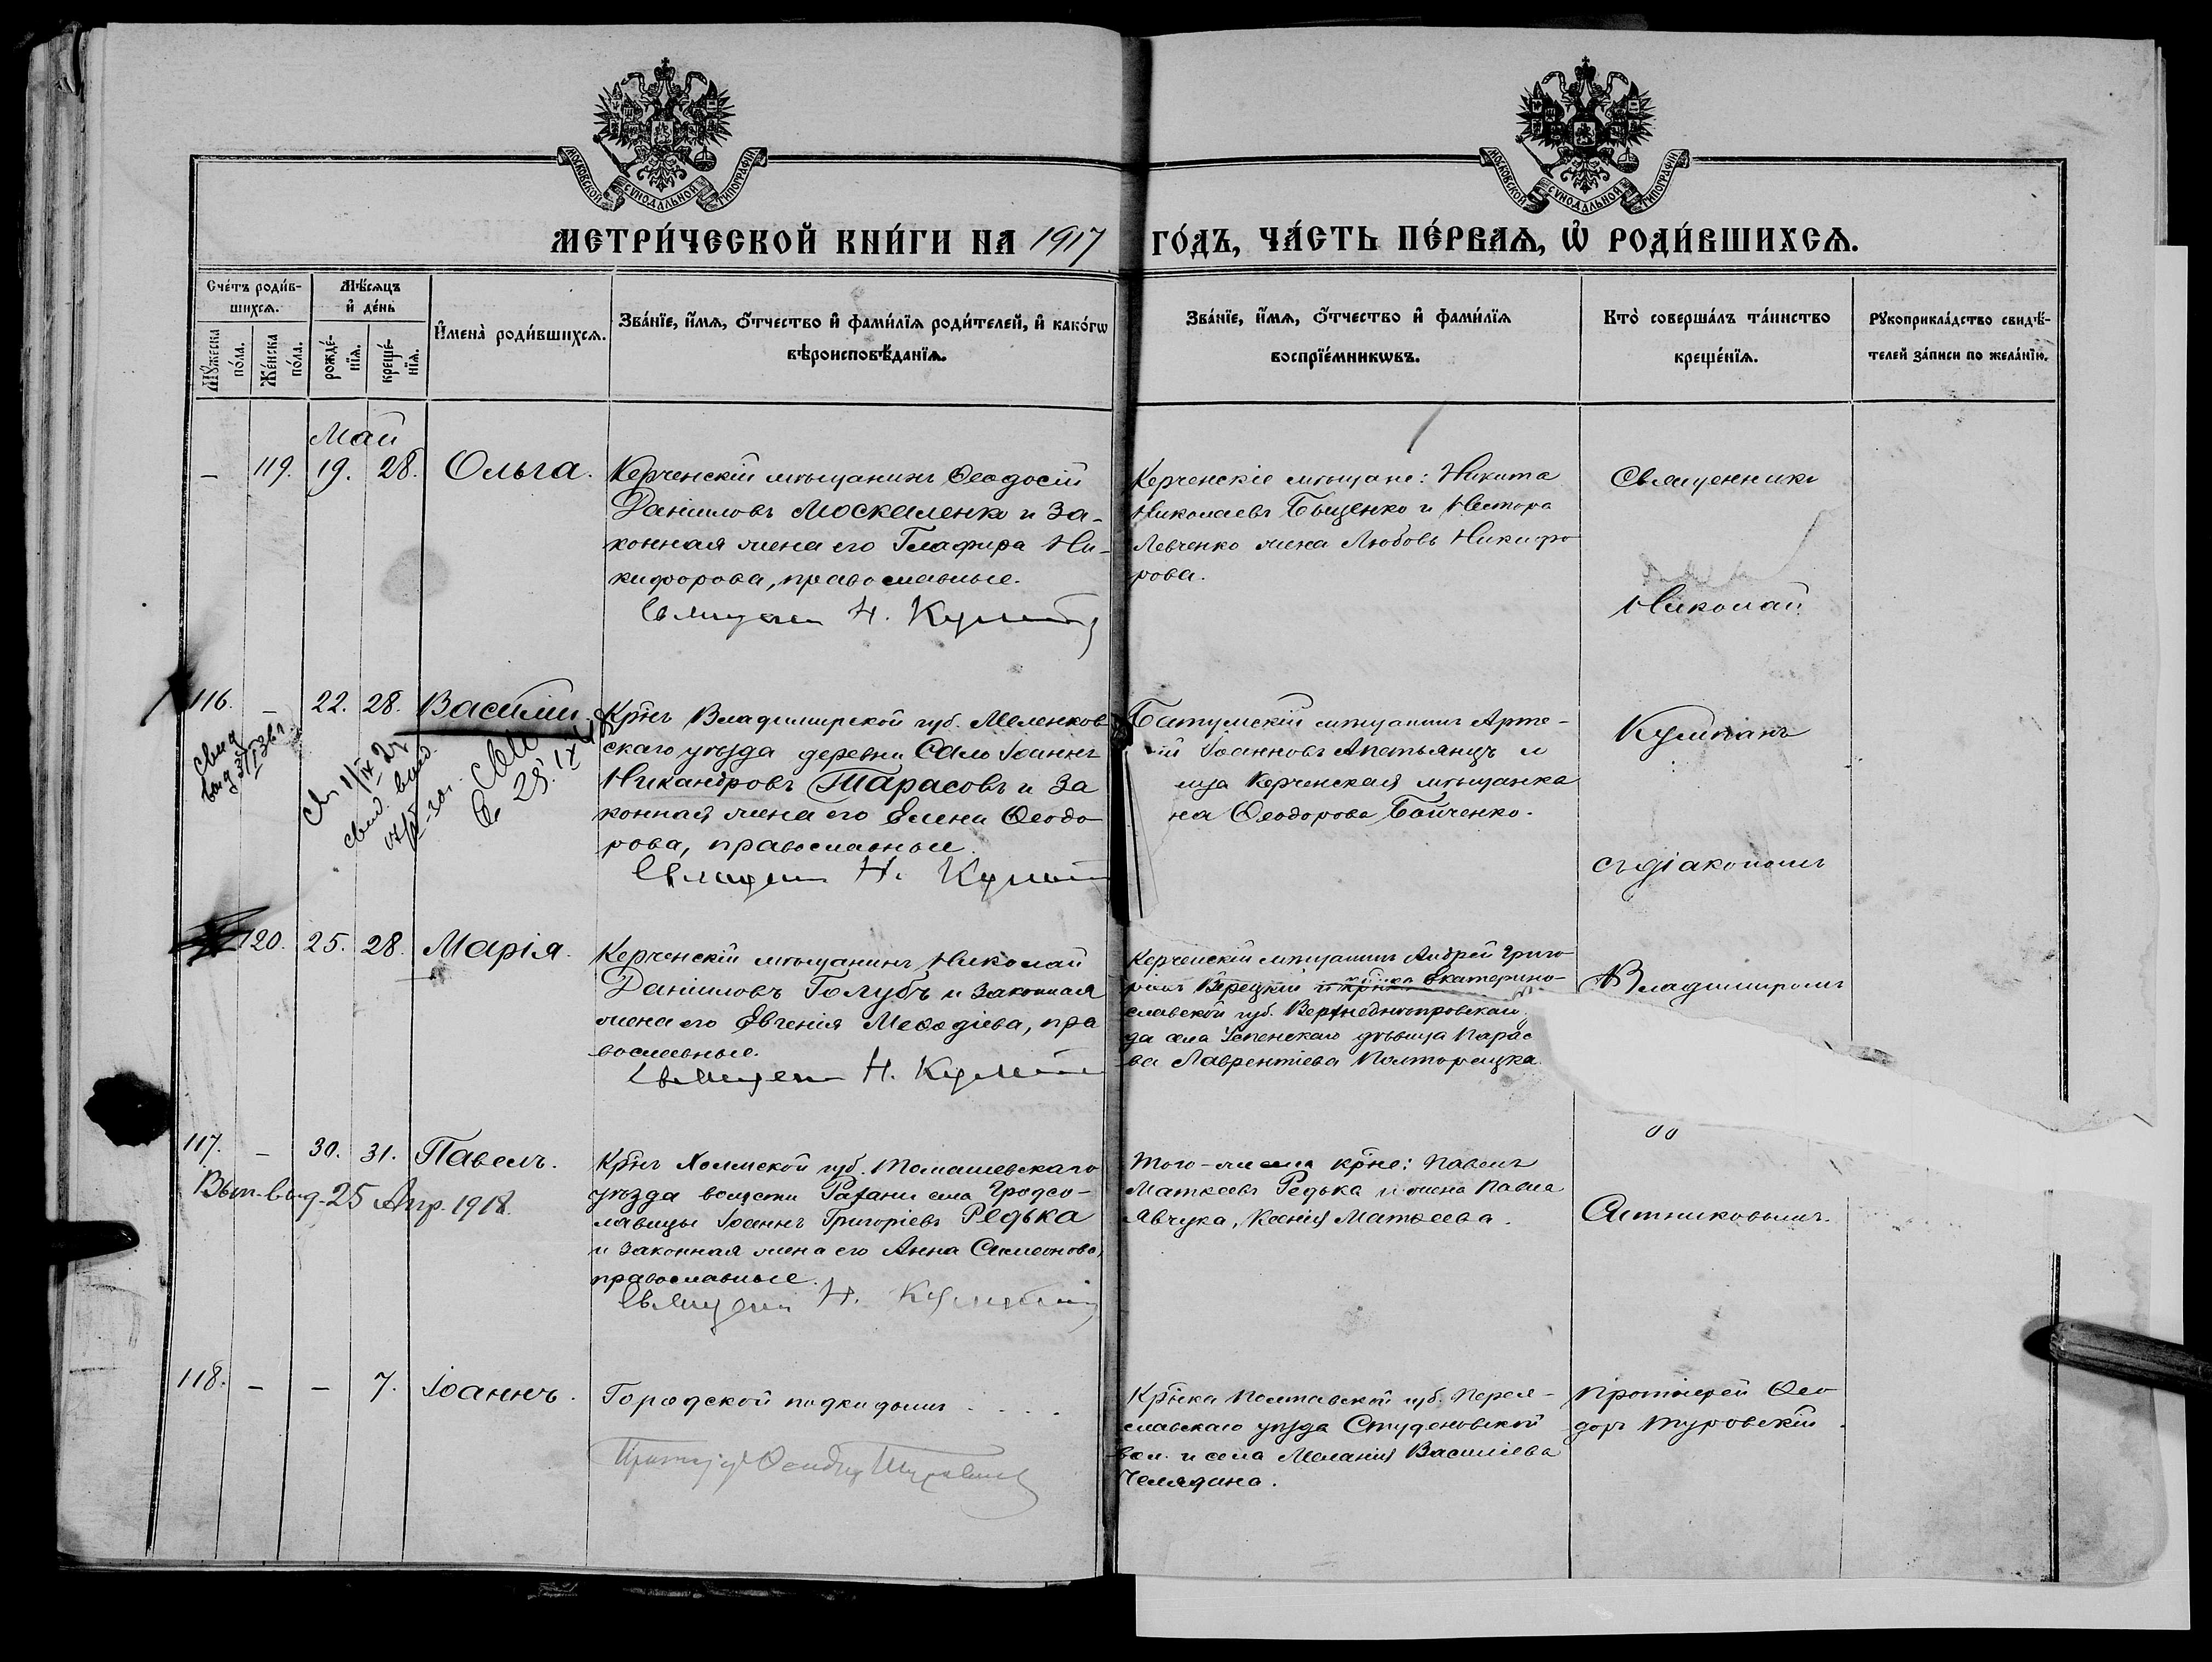 МОСКОВСКОЙ СѴНОДАЛЬНОЙ ТИПОГРАФІИ
МОСКОВСКОЙ СѴНОДАЛЬНОЙ ТИПОГРАФІИ
МЕТРИ́ЧЕСКОЙ КНИ́ГИ НА 1917 ГО́ДЪ, ЧА́СТЬ ПЕ́РВАѦ, Ѡ҆ РОДИ́ВШИХСѦ.
Сче́тъ роди́в-
шихсѧ.
Мѣ́сѧцъ
и҆ де́нь
Мꙋ́жеска
по́ла.
Же́нска
по́ла.
рожде́-
нїѧ.
креще́-
нїѧ.
И҆мена̀ роди́вшихсѧ.
Зва́нїе, и҆́мѧ, ѻ҆́тчество и҆ фами́лїѧ роди́телей, и҆ како́гѡ
вѣроисповѣ́данїѧ.
Зва́нїе, и҆́мѧ, ѻ҆́тчество и҆ фами́лїѧ
воспрїе́мникѡвъ.
Кто̀ соверша́лъ та́инство
креще́нїѧ.
Рꙋкоприкла́дство свидѣ́-
телей за́писи по жела́нїю.
Май
– 119. 19. 28. Ольга.
Керченскій мѣщанинъ Ѳеодосій
Даніиловъ Москаленко и за-
конная жена его Глафира Ни-
кифорова, православные.
Священ Н. Кумпан
Керченскіе мѣщане: Никита
Николаевъ Быценко и Нестора
Левченко жена Любовь Никифо
рова.
Священникъ
Николай
116. – 22. 28. Василій
свид
выд 3/I 36 г.
Крнъ Владимирской губ. Меленков
скаго уѣзда деревни Сало Іоаннъ
Никандровъ Тарасовъ и за
конная жена его Елена Ѳеодо
рова, православные.
Священ Н. Кумпан
Батумскій мѣщанинъ Арте-
ій Іоанновъ Апатьянцъ и
ица Керченская мѣщанка
на Ѳеодорова Бойченко.
Кумпанъ
съ діакономъ
120. 25. 28. Марія.
Керченскій мѣщанинъ Николай
Даніиловъ Голубъ и законная
жена его Евгенія Меѳодіева, пра
вославные.
Священ Н. Кумпан
Керченскій мѣщанинъ Андрей Григо
Верецкій и крнка Екатерино-
славской губ. Верхнеднѣпровскаго
да села Успенскаго дѣвица Парас
ва Лаврентіева Полторацка
Владимиромъ
117. – 30. 31. Павелъ.
Вып. выд. 25 Апр. 1918.
Крнъ Холмской губ. Томашевскаго
уѣзда волости Рахани села Гродсо-
лавицы Іоаннъ Григоріевъ Редька
и законная жена его Анна Симеонова,
православные.
Священ Н. Кумпан
Того-же села крне: Павелъ
Матѳеевъ Редька и жена Павла
Явчука, Ксенія Матѳеева.
Ситниковымъ.
118. – – 7. Іоаннъ.
Городской подкидышъ . . . .
Протоіер Ѳеодор Туровскій
Крнка Полтавской губ. Перея-
славскаго уѣзда Студеновской
вол. и села Меланія Василіева
Челядина.
Протоіерей Ѳео
доръ Туровскій.